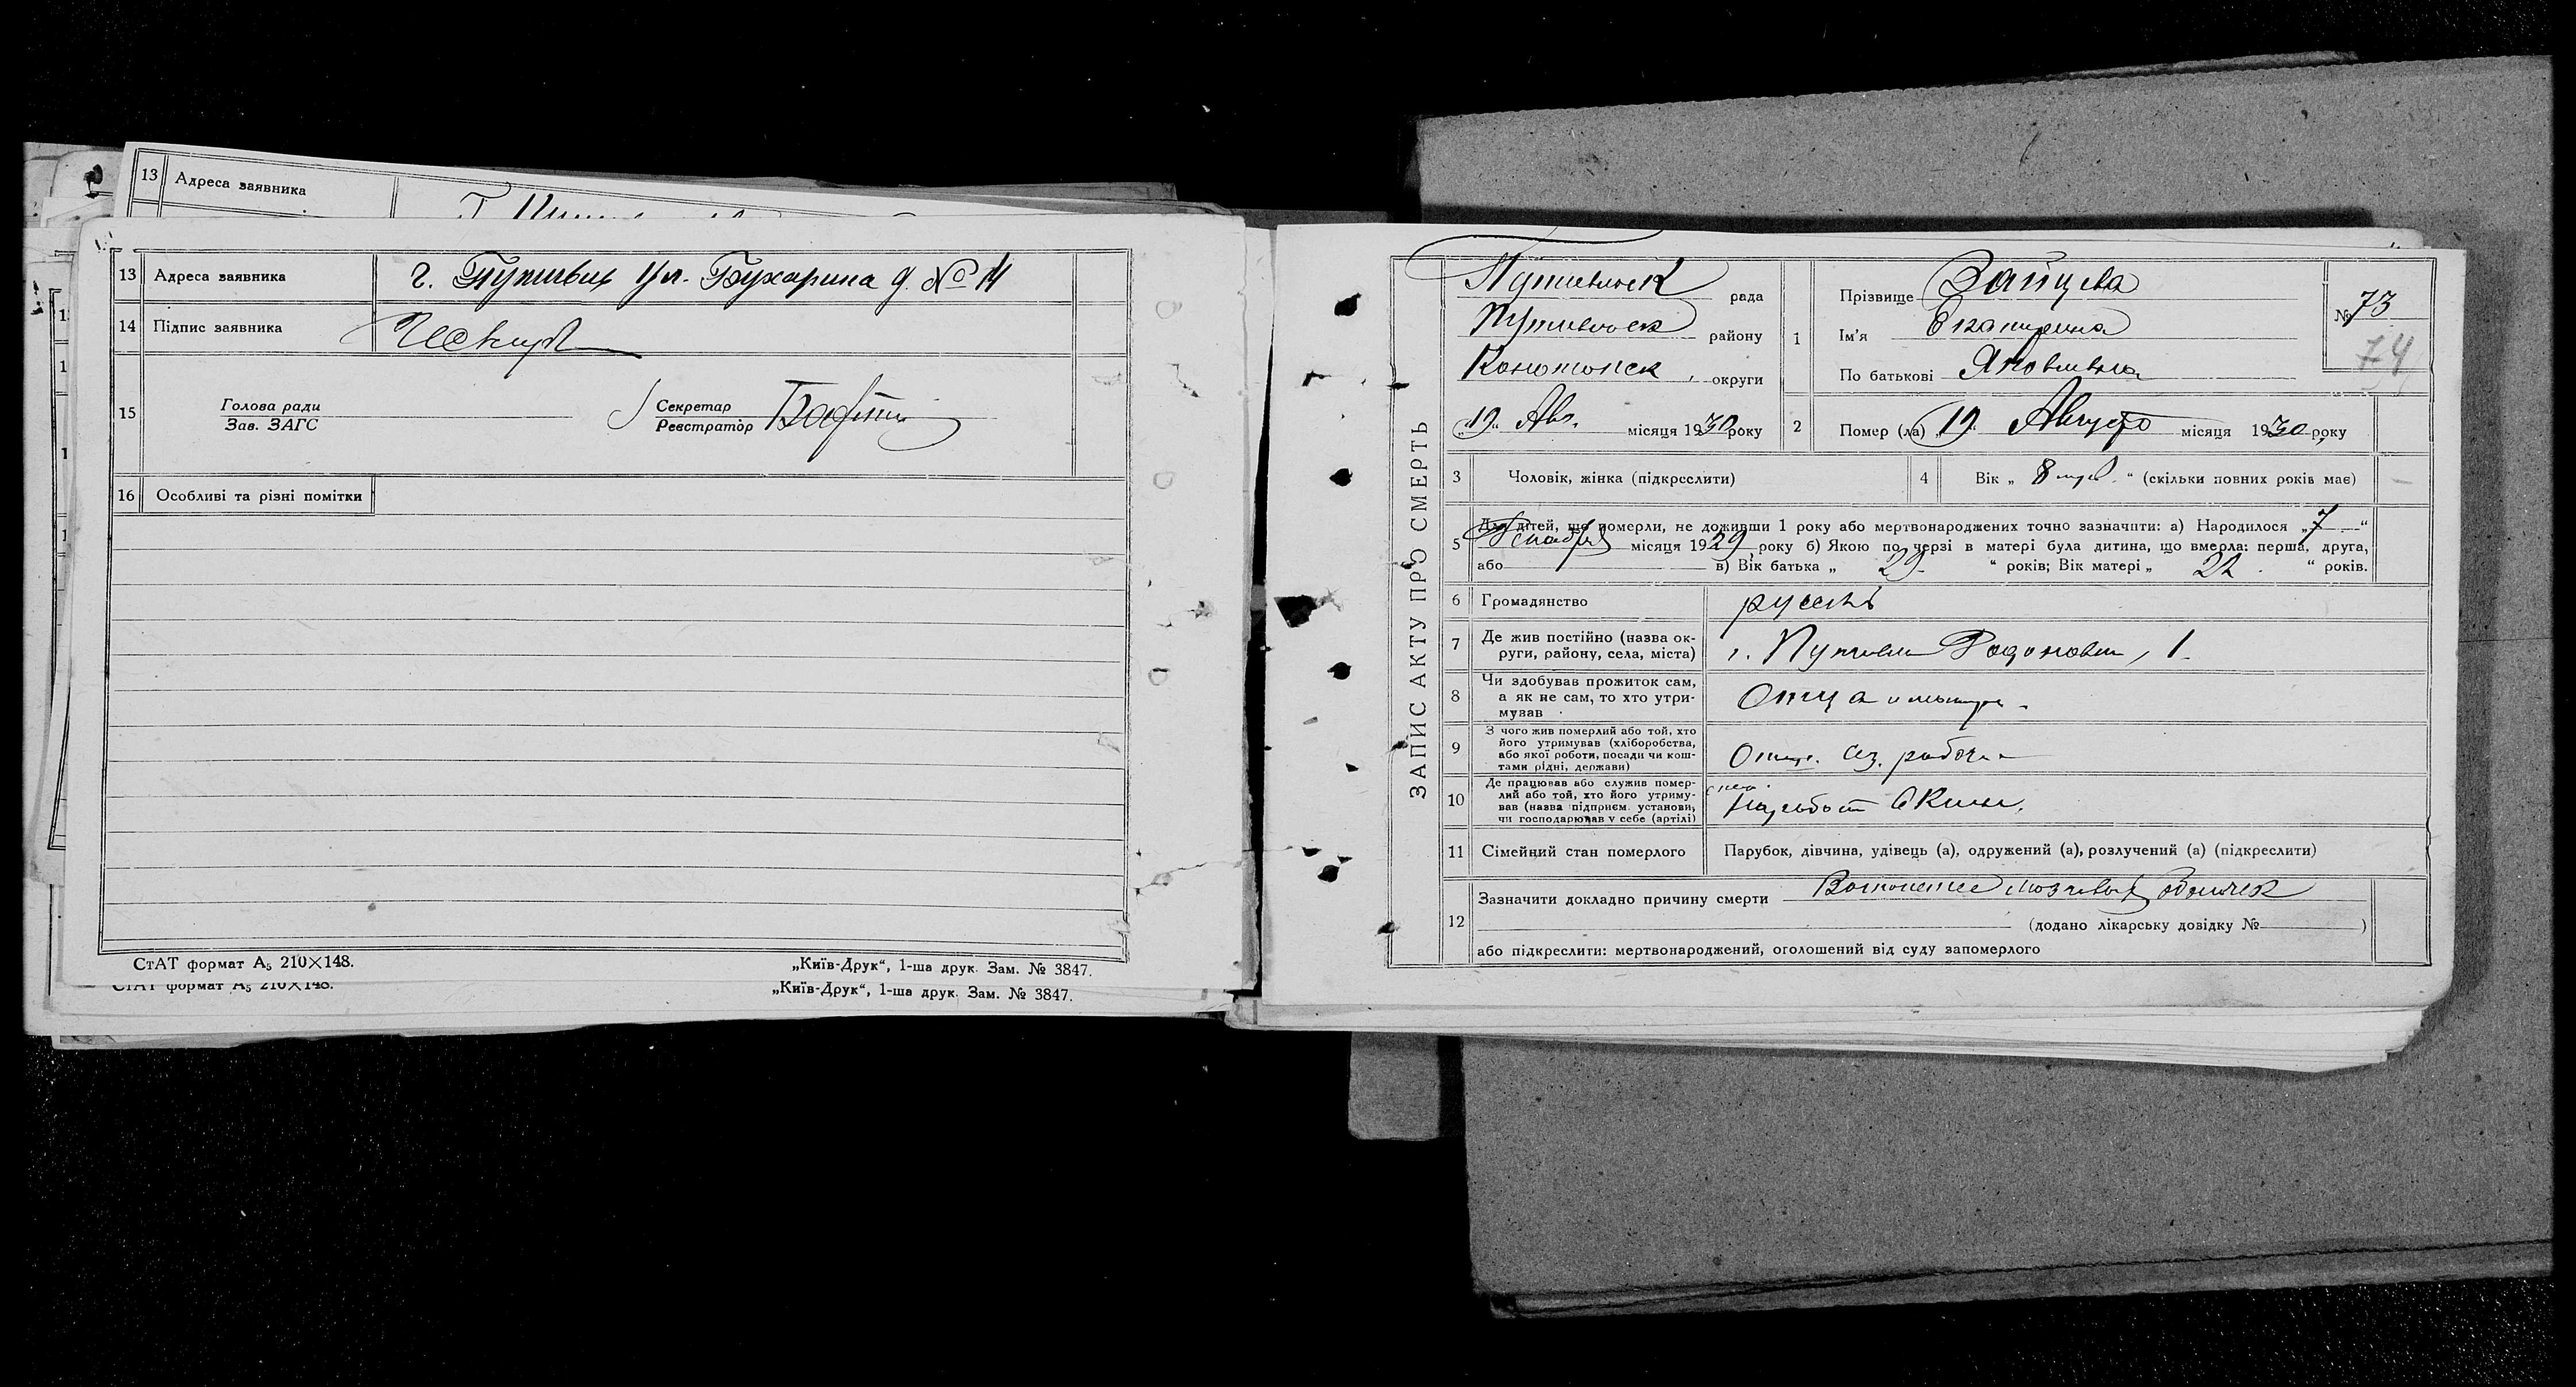 13 Адреса заявника
13 Адреса заявника г. Путивль ул. Бухарина д. № 11
14 Підпис заявника
15 Голова ради Секретар
Зав. ЗАГС Реєстратор
16 Особливі та різні помітки
СтАТ формат А5 210×148. „Київ-Друк“, 1-ша друк. Зам. № 3847.
СтАТ формат А5 210×148. „Київ-Друк“, 1-ша друк. Зам. № 3847.
ЗАПИС АКТУ ПРО СМЕРТЬ
Путивльск рада
Путивльск району
Конотопск, округи
„19“ Авг. місяця 1930 року
1 Прізвище Зайцева
Ім'я Екатерина
По батькові Яковлевна
№ 73
74
2 Помер (ла) „19“ Августа місяця 1930 року
3 Чоловік, жінка (підкреслити)
4 Вік „ 8 мес. “ (скільки повних років має)
5 Для дітей, що померли, не доживши 1 року або мертвонароджених точно зазначити: а) Народилося „7“
Декабря місяця 1929 року б) Якою по черзі в матері була дитина, що вмерла: перша, друга,
або в) Вік батька „ 29 “ років; Вік матері „ 22 “ років.
6 Громадянство русск
7 Де жив постійно (назва ок-
руги, району, села, міста) г. Путивль 1
8 Чи здобував прожиток сам,
а як не сам, то хто утри-
мував Отец и матер
9 З чого жив померлий або той, хто
його утримував (хліборобства,
або якої роботи, посади чи кош-
тами рідні, держави)
10 Де працював або служив помер-
лий або той, хто його утриму-
вав (назва підприєм. установи,
чи господарював у себе (артілі)
11 Сімейний стан померлого Парубок, дівчина, удівець (а), одружений (а), розлучений (а) (підкреслити)
12 Зазначити докладно причину смерти мозговых оболочек
(додано лікарську довідку № )
або підкреслити: мертвонароджений, оголошений від суду запомерлого